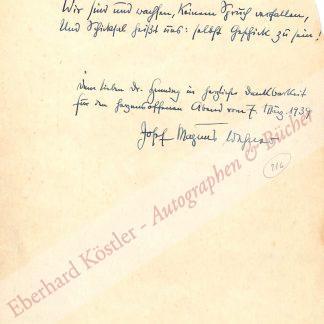 Wir sind und wachsen, keinem Spruch verfallen,
Und Schicksal heißt uns: selbst Geschick zu sein!
Dem lieben Dr. in herzlicher Dankbarkeit
für den herzensoffenen Abend vom 7. März 1939
Josef Magnus Wehner
Eberhard Köstler - Autographen & Bücher